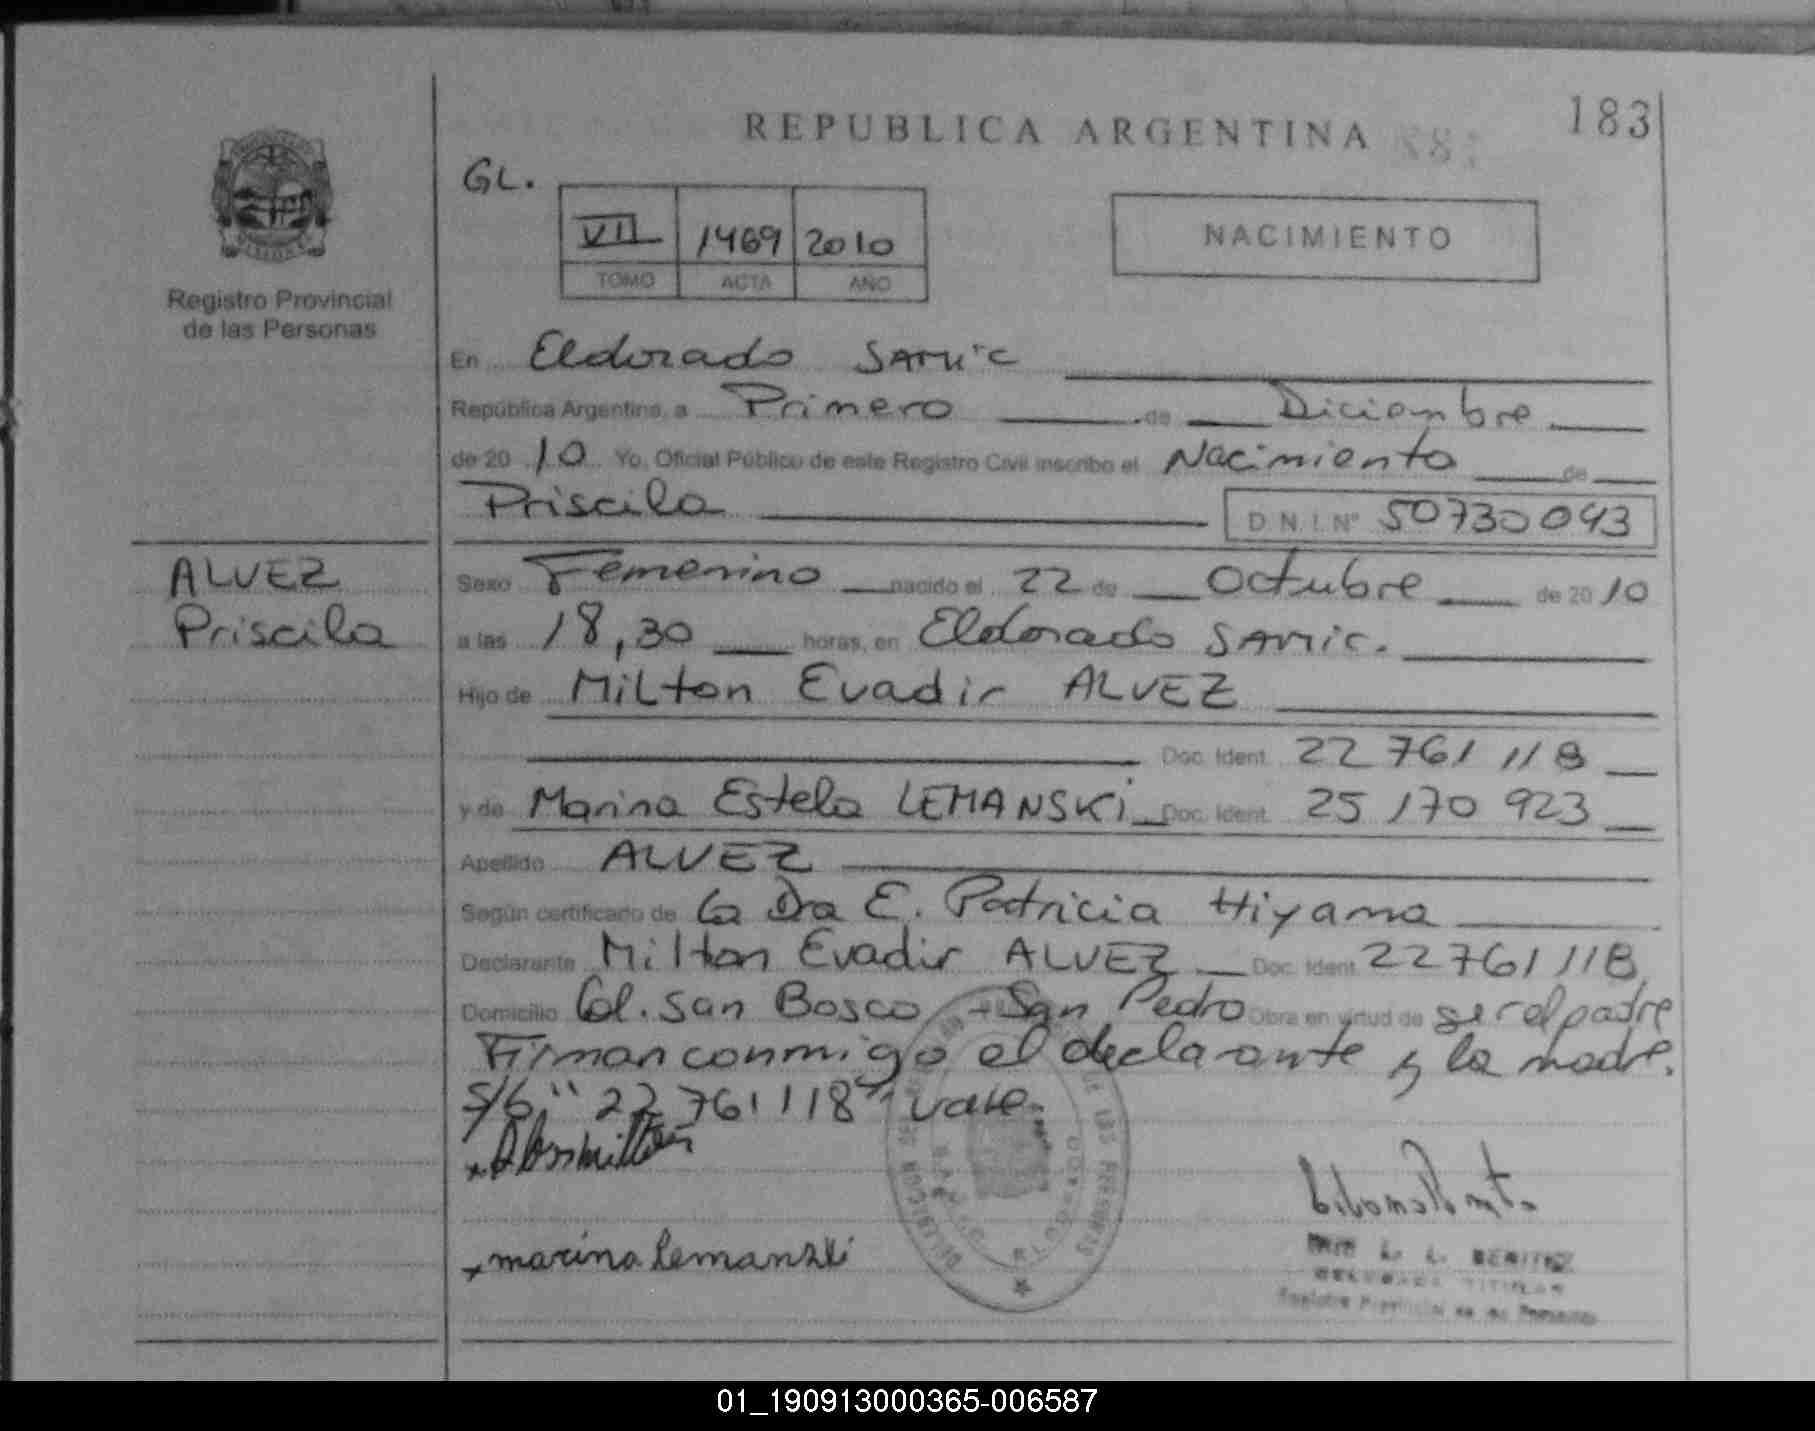 REPUBLICA ARGENTINA
183
GL.
VII 1469 2010
TOMO ACTA AÑO
NACIMIENTO
Registro Provincial
de las Personas
En Eldorado SAMIC
República Argentina, a Primero de Diciembre
de 20 10 Yo, Oficial Público de este Registro Civil inscribo el Nacimiento de
Priscila D.N.I. Nº 50730043
ALVEZ
Priscila
Sexo Femenino nacido el 22 de Octubre de 20 10
a las 18,30 horas, en Eldorado SAMIC.
Hijo de Milton Evadir ALVEZ
Doc. Ident. 22 761 118
y de Marina Estela LEMANSKI Doc. Ident. 25 170 923
Apellido ALVEZ
Según certificado de la Dra E. Patricia Hiyama
Declarante Milton Evadir ALVEZ Doc. Ident. 22761118
Domicilio Col. San Bosco - San Pedro Obra en virtud de ser el padre
Firman conmigo el declarante y la madre.
S/b: "22 761118" vale.
marina Lemanzki
L. L. BENITEZ
DELEGADA TITULAR
Registro Provincial de las Personas
01_190913000365-006587